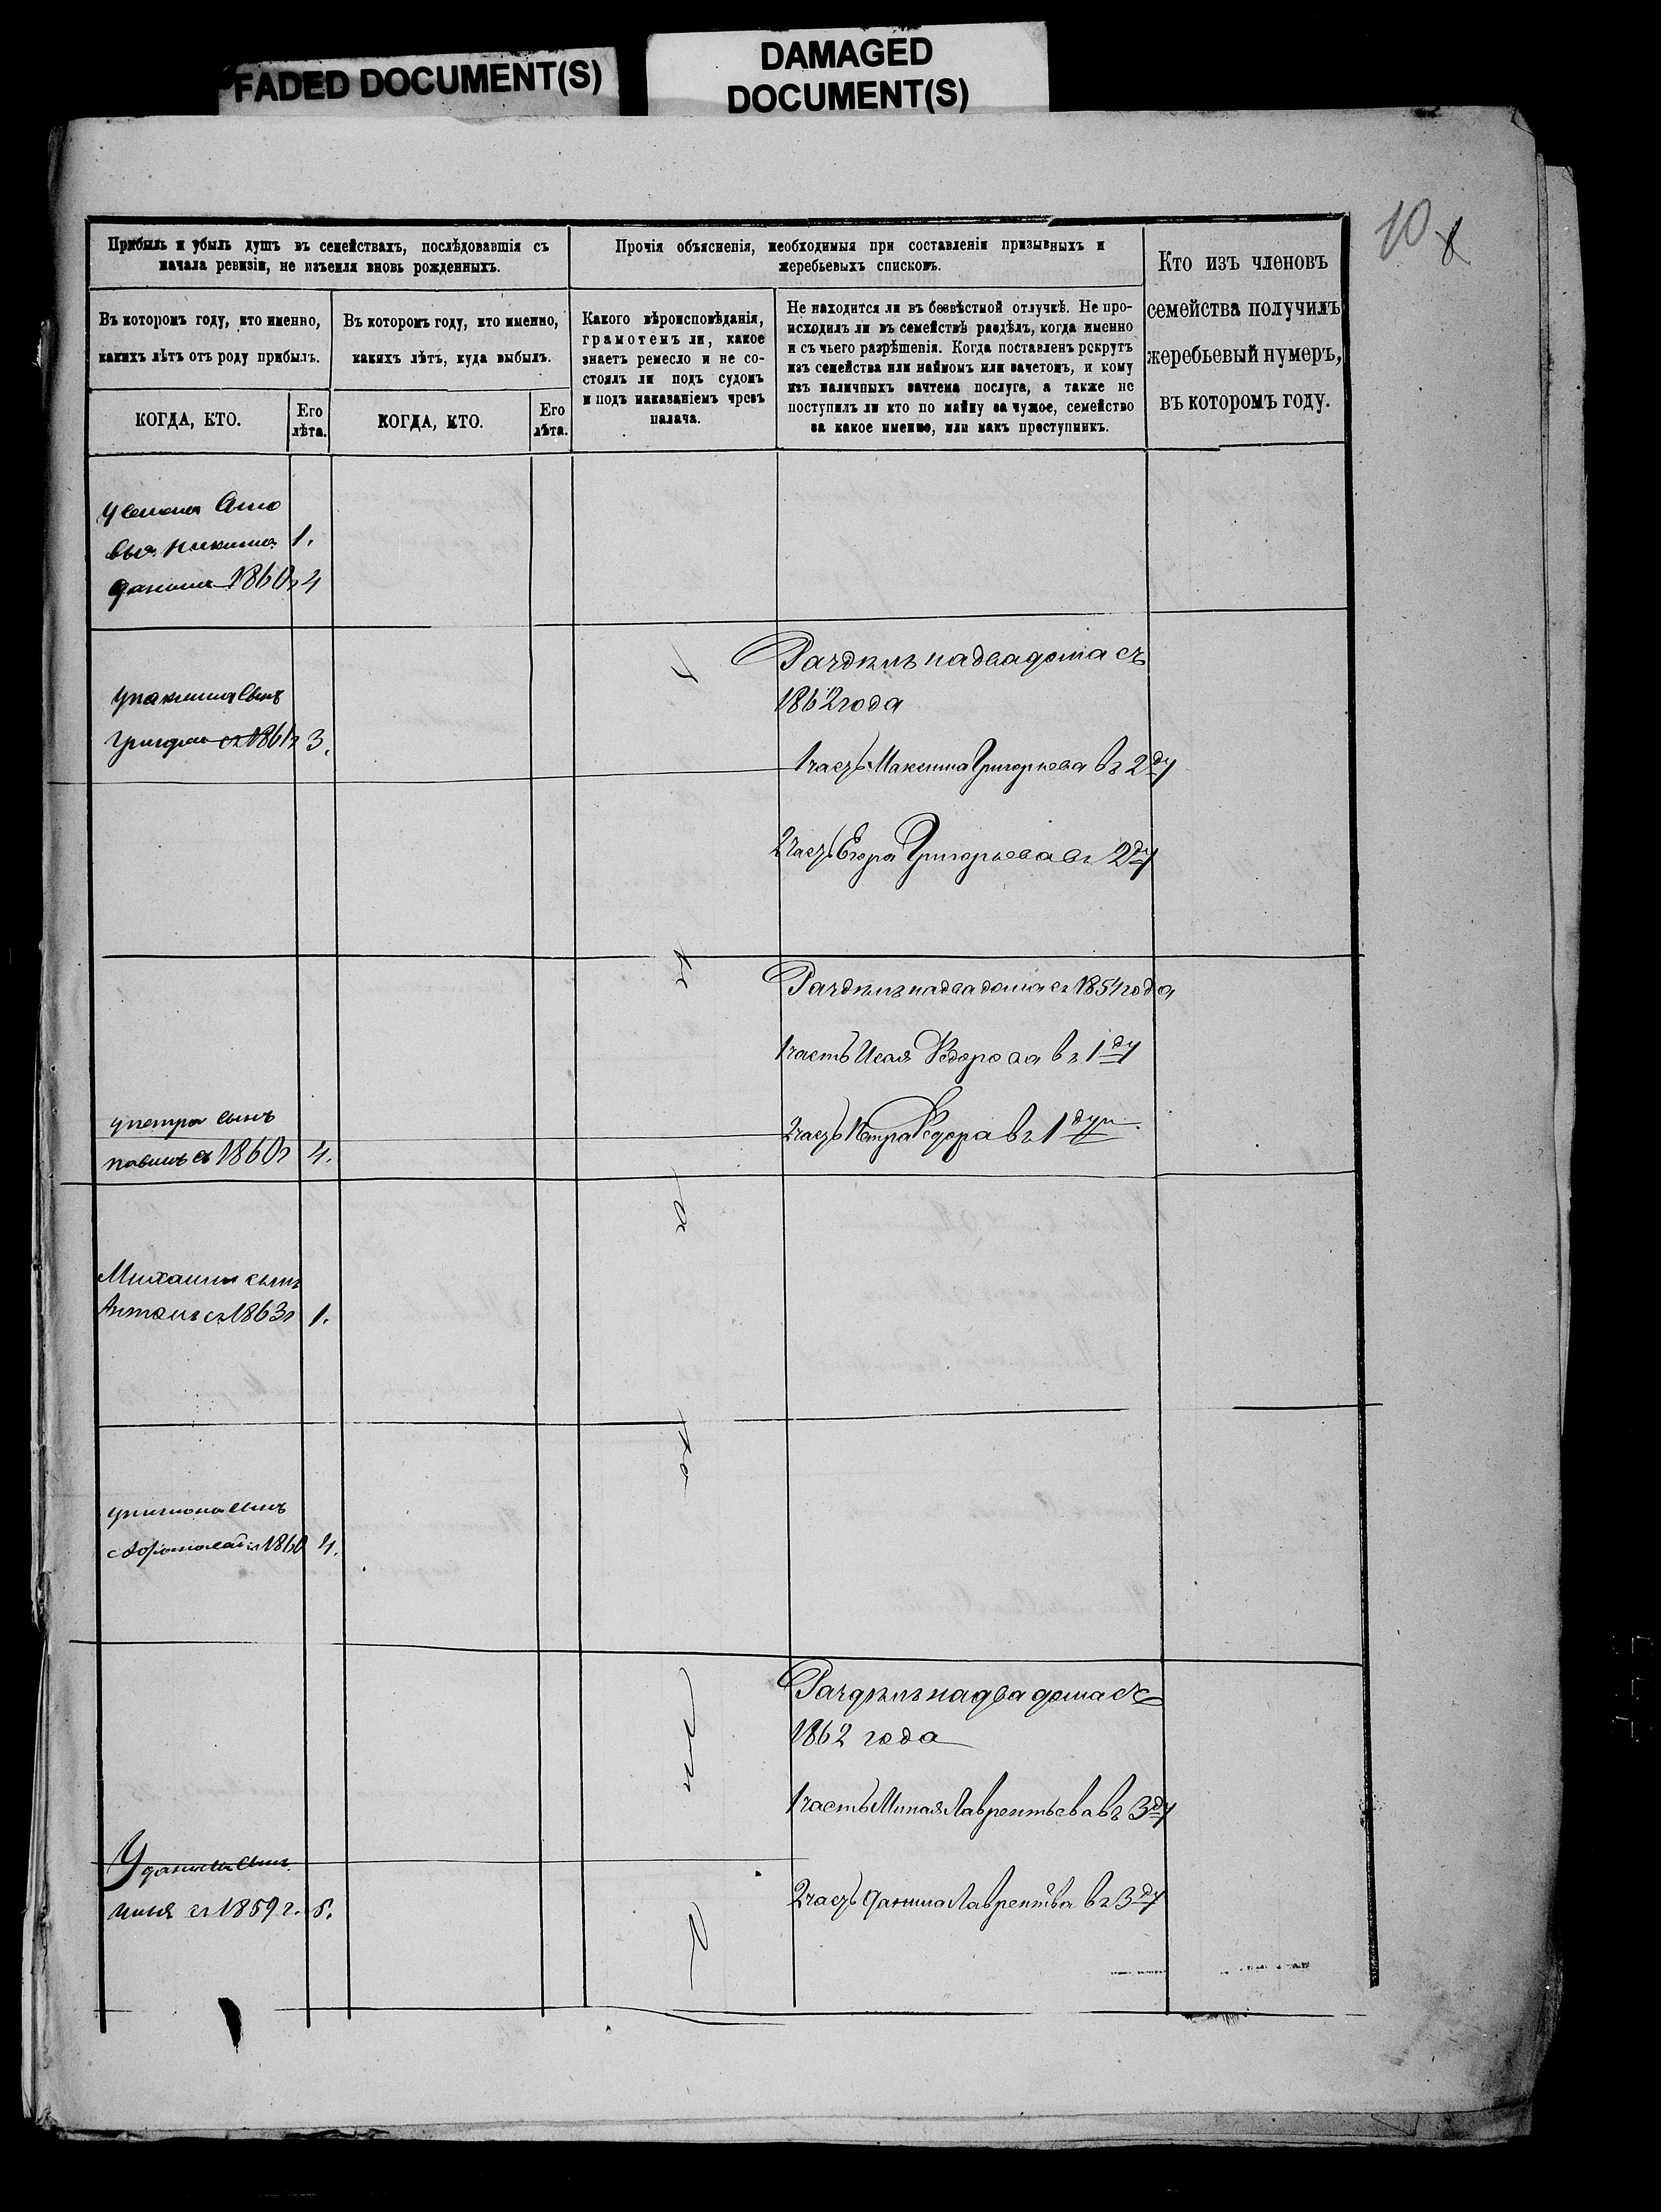 FADED DOCUMENT(S)
DAMAGED
DOCUMENT(S)
10
Прибыль и убыль душъ въ семействахъ, послѣдовавшія съ
начала ревизіи, не изъемля вновь рожденныхъ.
Прочія объясненія, необходимыя при составленіи призывныхъ и
жеребьевыхъ списковъ.
Кто изъ членовъ
семейства получилъ
жеребьевый нумеръ,
въ которомъ году.
Въ которомъ году, кто именно,
какихъ лѣтъ отъ роду прибылъ.
Въ которомъ году, кто именно,
какихъ лѣтъ, куда выбылъ.
Какого вѣроисповѣданія,
грамотенъ ли, какое
знаетъ ремесло и не со-
стоялъ ли подъ судомъ
и подъ наказаніемъ чрезъ
палача.
Не находится ли въ безвѣстной отлучкѣ. Не про-
исходилъ ли въ семействѣ раздѣлъ, когда именно
и съ чьего разрѣшенія. Когда поставленъ рекрутъ
изъ семейства или наймомъ или зачетомъ, и кому
изъ наличныхъ зачтена послуга, а также не
поступилъ ли кто по найму за чужое, семейство
за какое именно, или какъ преступникъ.
КОГДА, КТО.
Его
лѣта.
КОГДА, КТО.
Его
лѣта.
1.
1860г 4
Раздѣлъ на два дома съ
1862 года
сынъ
съ 1861г 3.
1 часть Максима Григорьева въ 2 ду
2 часть Егора Григорьева въ 2 ду
Раздѣлъ на два дома съ 1854 года
1 часть Исая Федорова въ 1 ду
у петра сынъ
2 часть Петра Федора въ 1 душ.
павилъ съ 1860г 4.
Михаила сынъ
Антонъ съ 1863г 1.
сынъ
1860 4.
Раздѣлъ на два дома съ
1862 года
1 часть Миная Лаврентьева въ 3 ду
У данила сынъ
съ 1859 г. 5.
2 часть данила Лаврентьва въ 3 ду